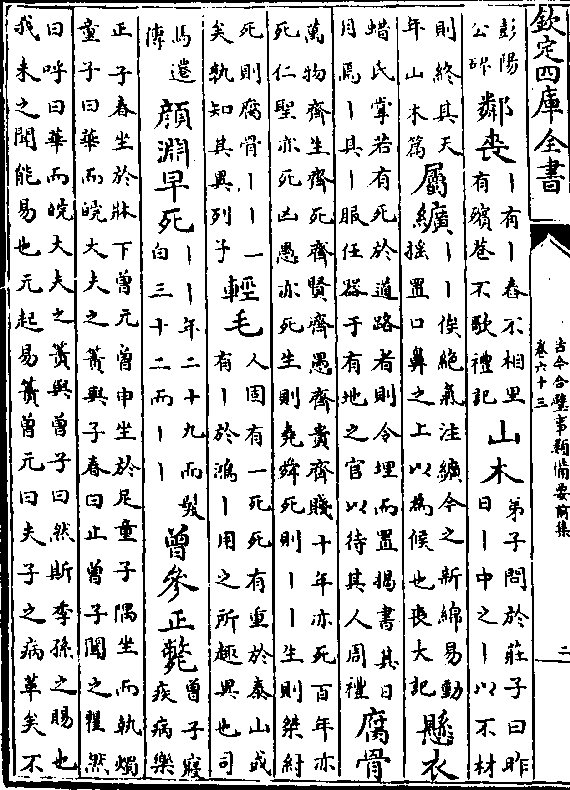 欽定四庫全書
古今合璧事類備要前集
卷六十三
二
彭陽
公碑
鄰喪
丨有丨舂不相里
有殯巷不歌禮記
山木
弟子問於莊子曰昨
日丨中之丨以不材
則終其天
年山木篇
屬纊
丨丨俟絶氣注纊今之新綿易動
搖置口鼻之上以為候也喪大記
懸衣
蜡氏掌若有死於道路者則令埋而置楬書其日
月焉丨其丨服任器于有地之官以待其人周禮
腐骨
萬物齊生齊死齊賢齊愚齊貴齊賤十年亦死百年亦
死仁聖亦死凶愚亦死生則堯舜死則丨丨生則桀紂
死則腐骨丨丨一
矣孰知其異列子
輕毛
人固有一死死有重於泰山或
有丨於鴻丨用之所趣異也司
馬遷
傳
顔淵早死
丨丨年二十九而髮
白三十二而丨丨
曾參正斃
曾子寢
疾病樂
正子春坐於牀下曾元曾申坐於足童子隅坐而執燭
童子曰華而睆大夫之簀與子春曰止曾子聞之瞿然
曰呼曰華而睆大夫之簀與曾子曰然斯季孫之賜也
我未之聞能易也元起易簀曾元曰夫子之病革矣不